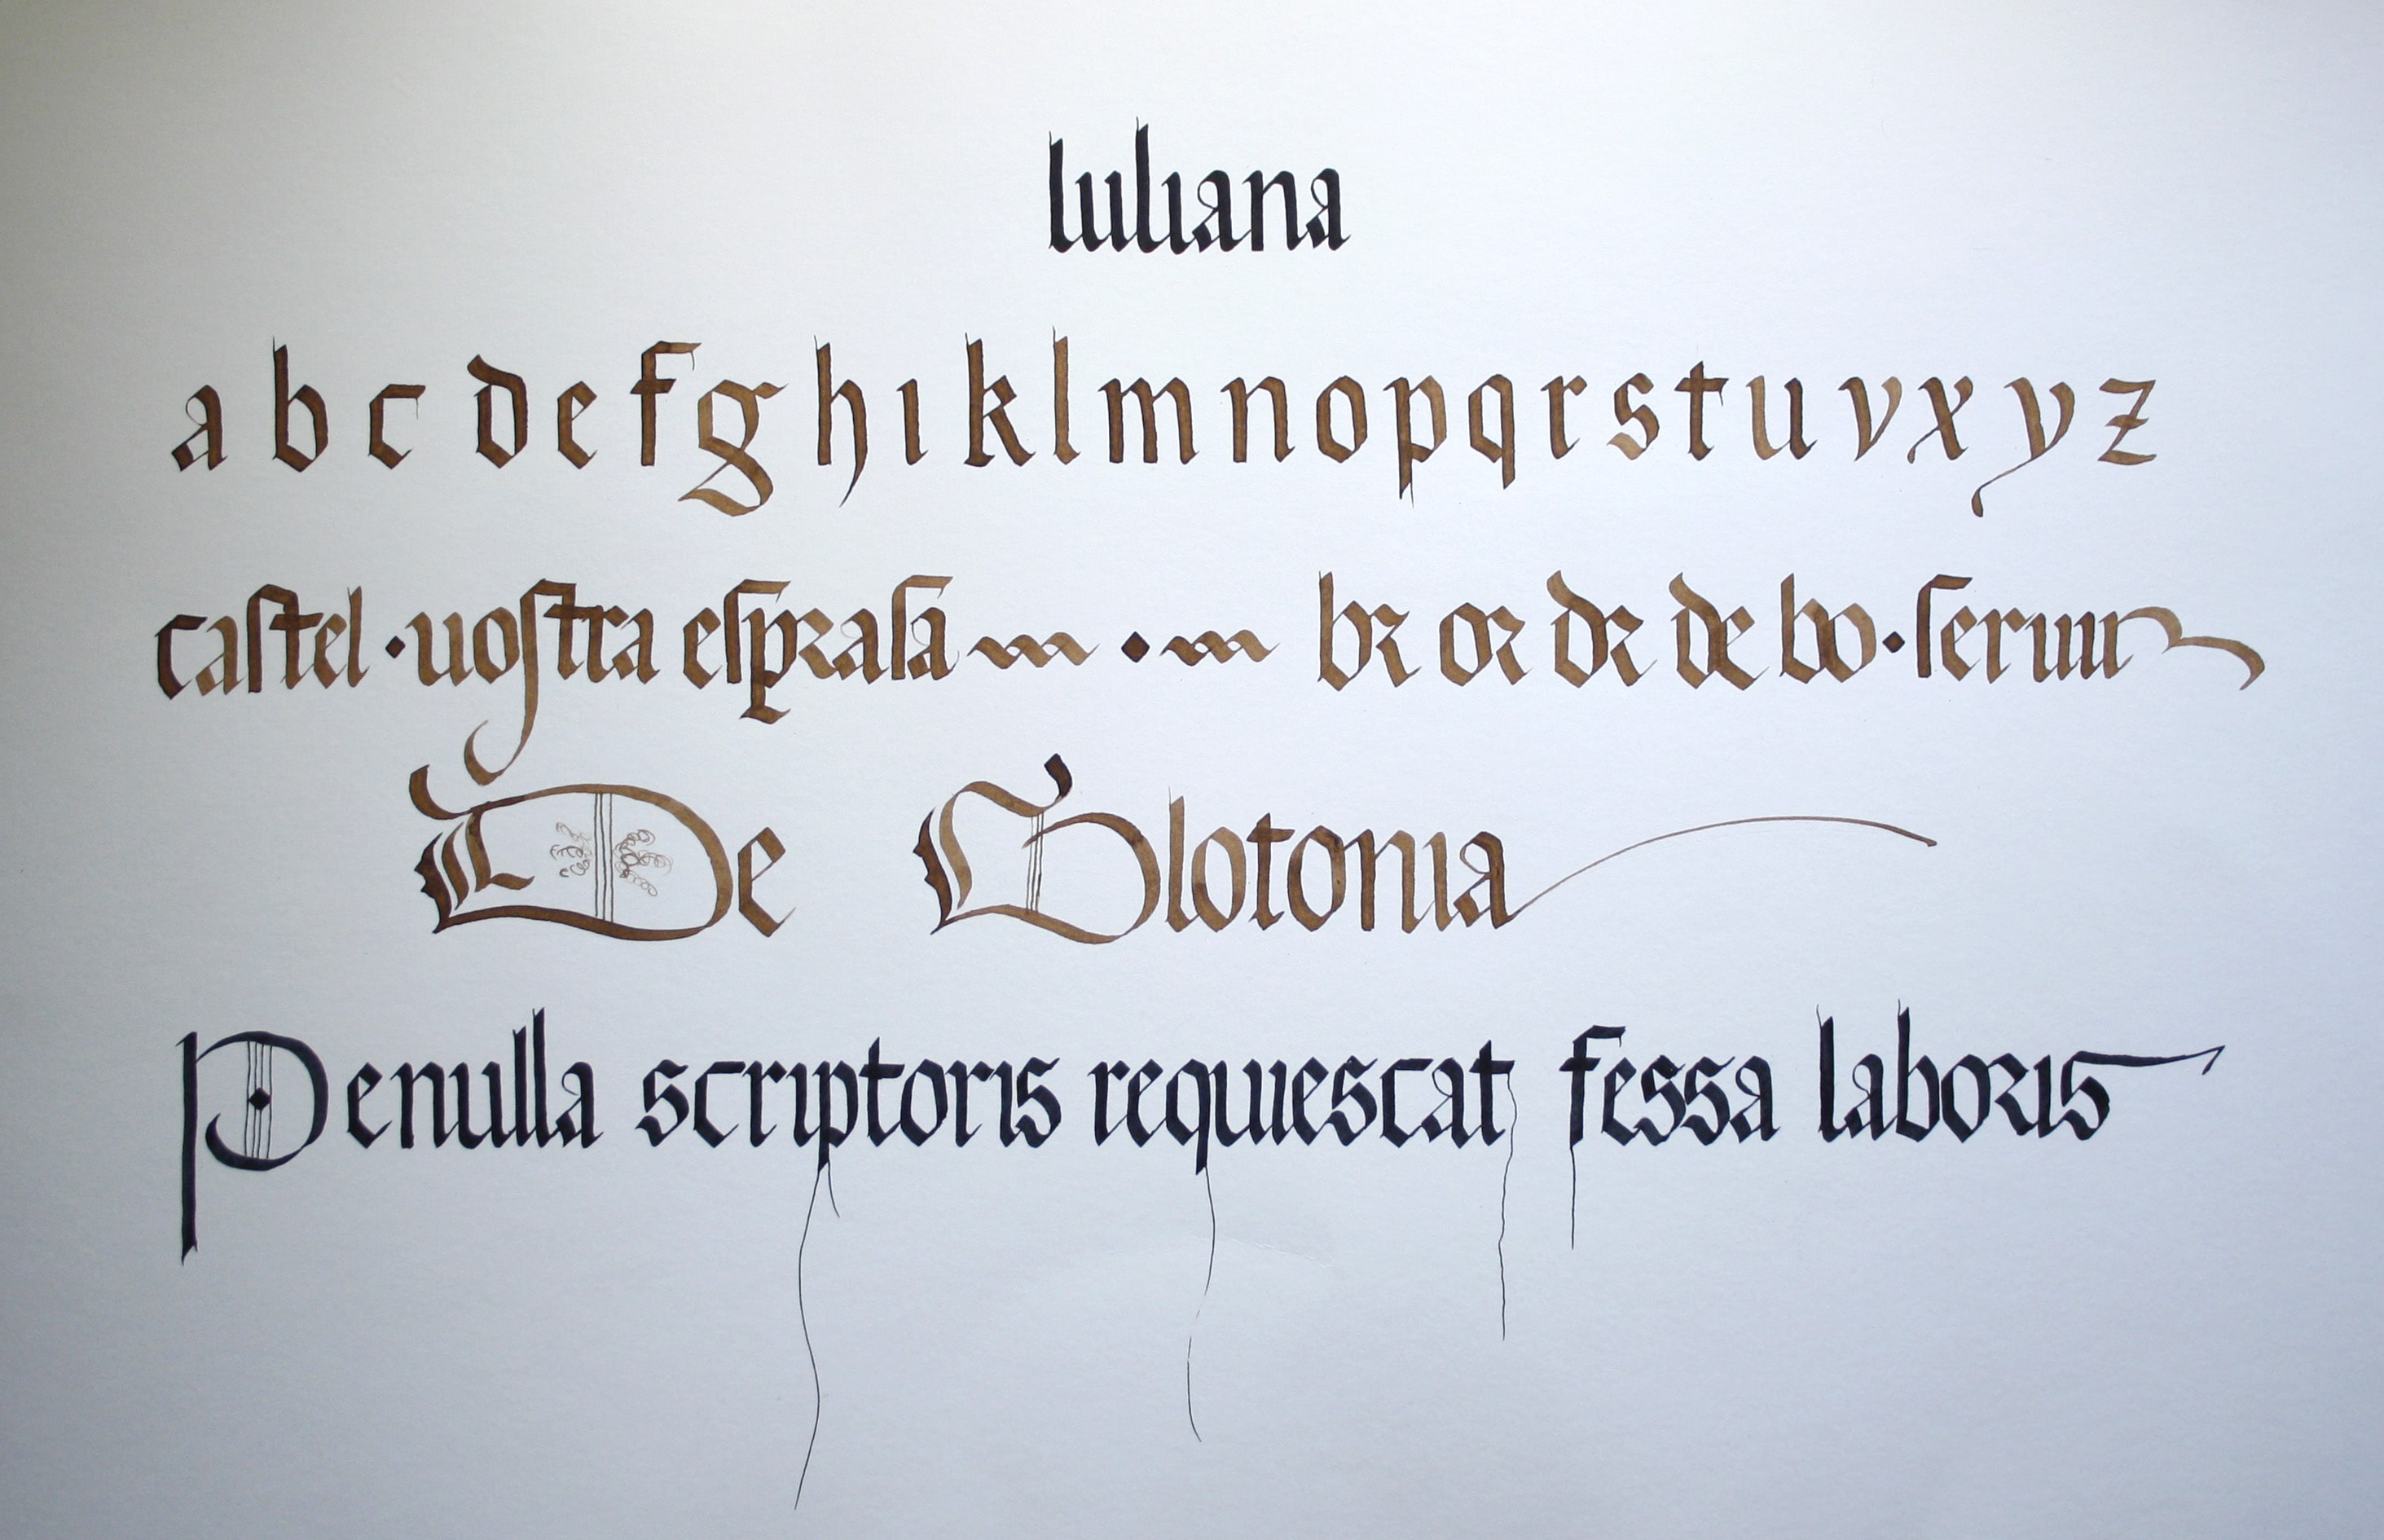 Iuliana
a b c d e f g h ı k l m n o p q r s t u v x y z
caſtel · uoſtra eſpꝛaſa m · m bꝛ oꝛ dꝛ de bo · ſeruır
De Glotonıa
Penulla scrıptorıs requıescat fessa laboꝛıs